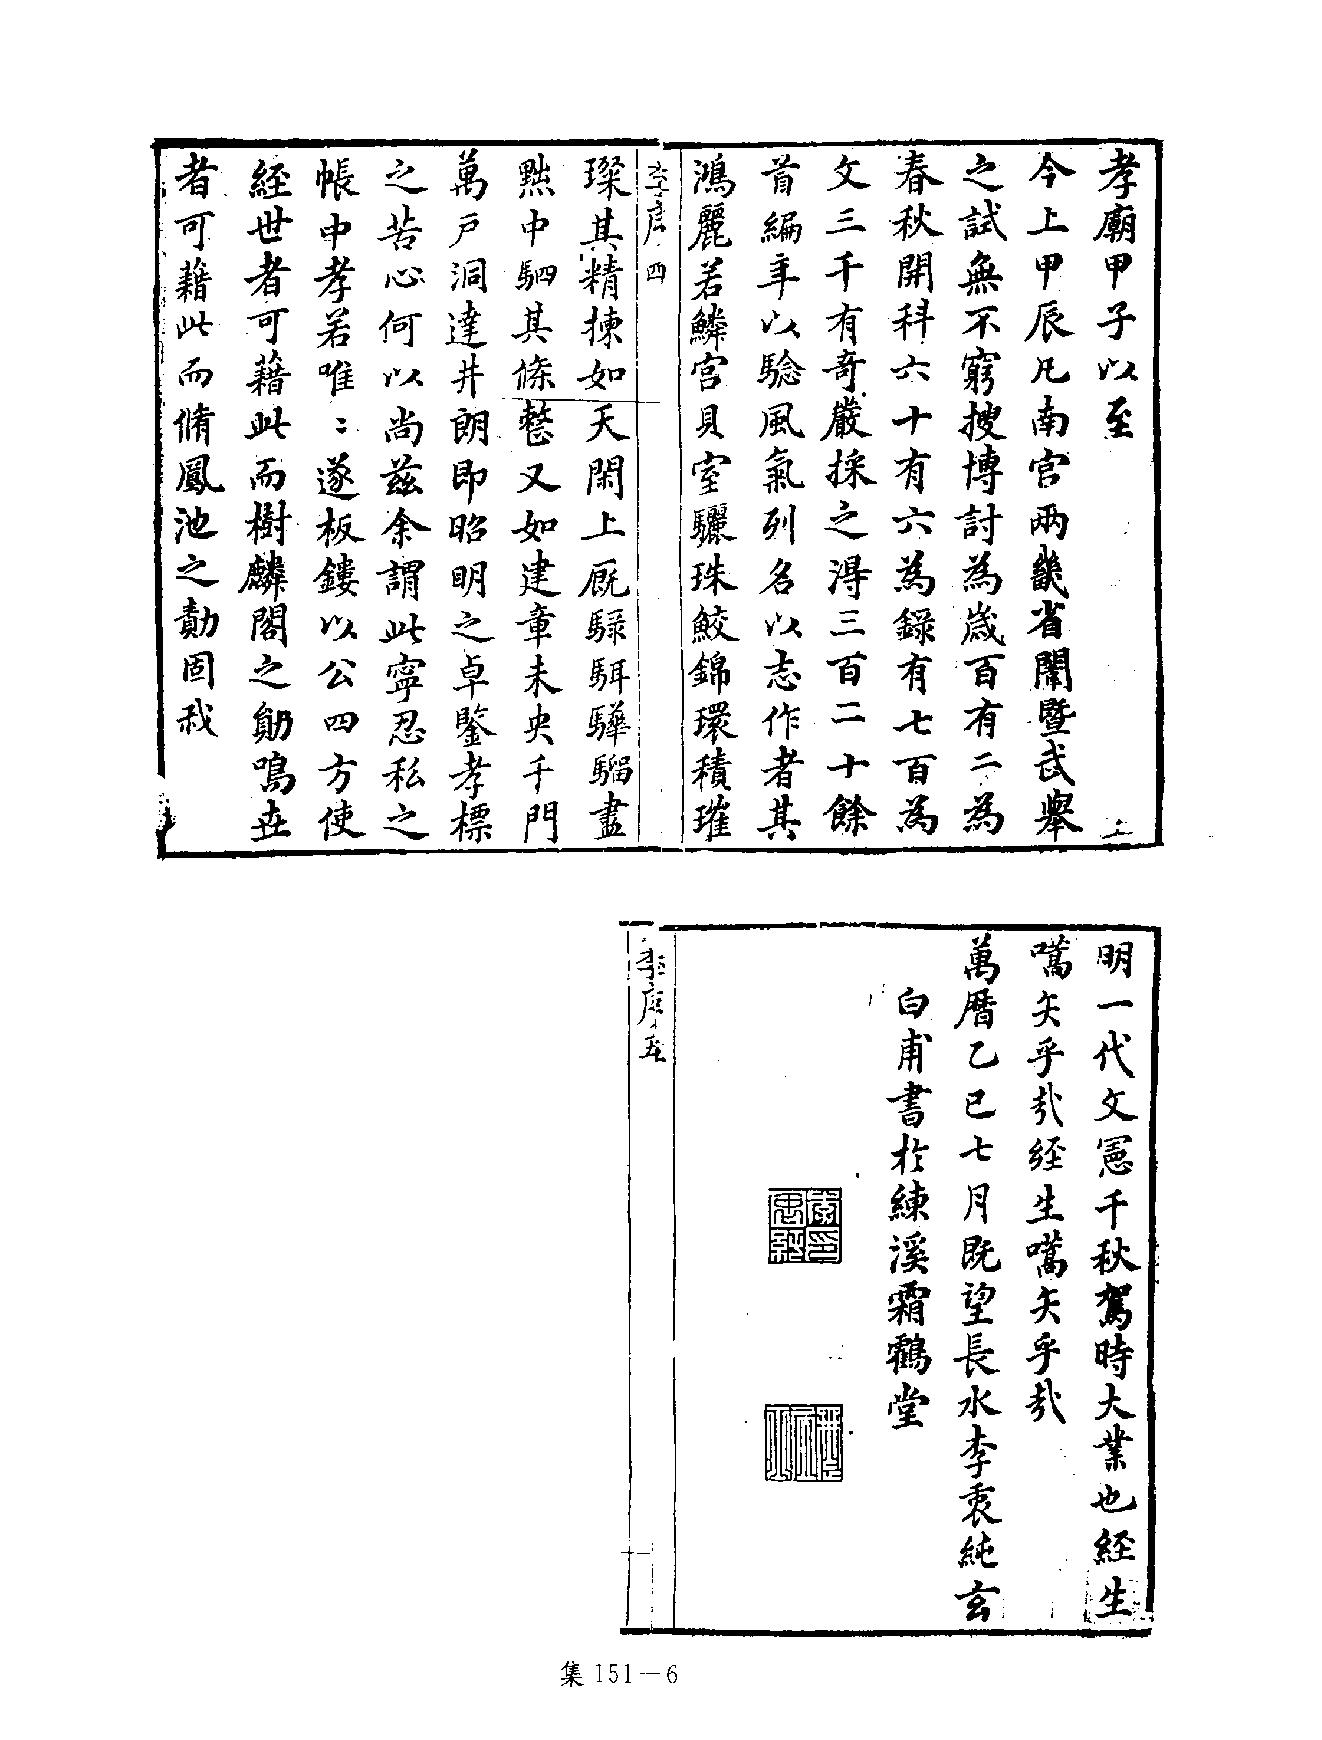 孝廟甲子以至
今上甲辰凡南宮兩畿省闈暨武舉
之試無不窮搜博討為歲百有二為
春秋開科六十有六為錄有七百為
文三千有奇嚴採之淂三百二十餘
首編年以騐風氣列名以志作者其
鴻麗若鱗宮貝室驪珠鮫錦環積璀
李序 四
璨其精揀如天閑上厩騄駬驊騮盡
㸃中駟其條整又如建章未央千門
萬戶洞達井朗即昭明之卓鑒孝標
之苦心何以尚茲余謂此寧忍私之
帳中孝若唯〻遂板鏤以公四方使
經世者可藉此而樹麟閣之勛鳴世
者可藉此而脩鳳池之勣固哉
明一代文憲千秋駕時大業也經生
噶矢乎哉經生噶矢乎哉
萬曆乙巳七月既望長水李衷純玄
白甫書於練溪霜鶴堂
李序 五
集 151－6